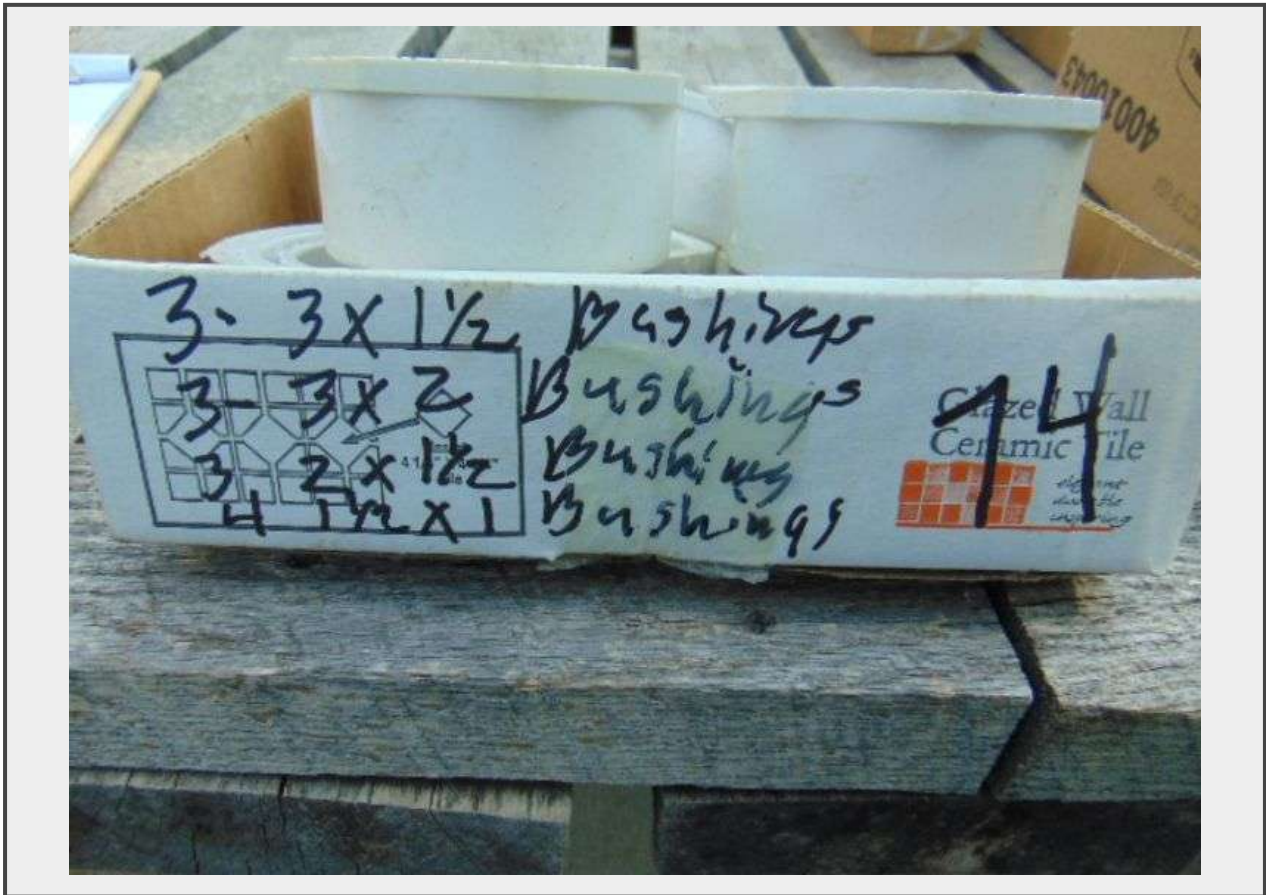 40010043
3- 3 x 1½ Bushings
3- 3 x 2 Bushings
3 2 x 1½ Bushings
4 1½ x 1 Bushings
14
Glazed Wall
Ceramic Tile